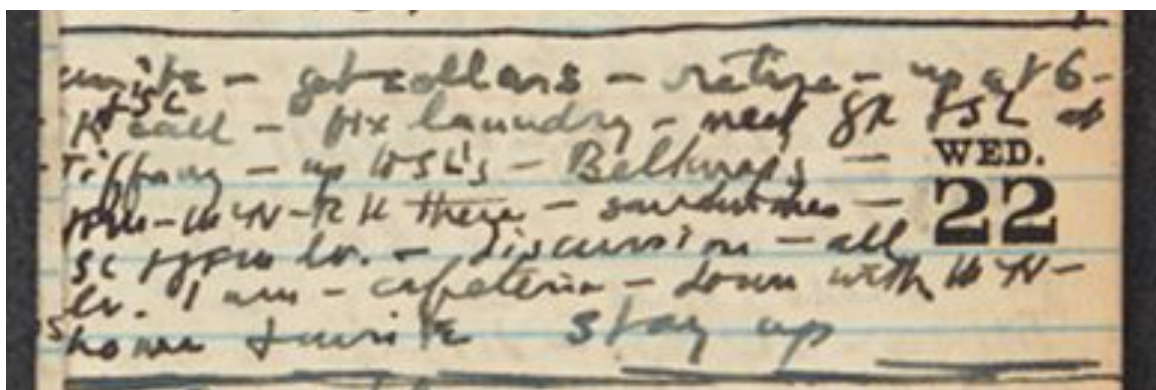 write — get collars — retire — up at 6 —
FSL
call — fix laundry — meet GK FSL at
Tiffany — up to SL's — Belknaps —
WED.
22
— W N — RK there — sandwiches —
lv. — discussion — all
lv. 1 am — cafeteria — down with W N —
home & write stay up